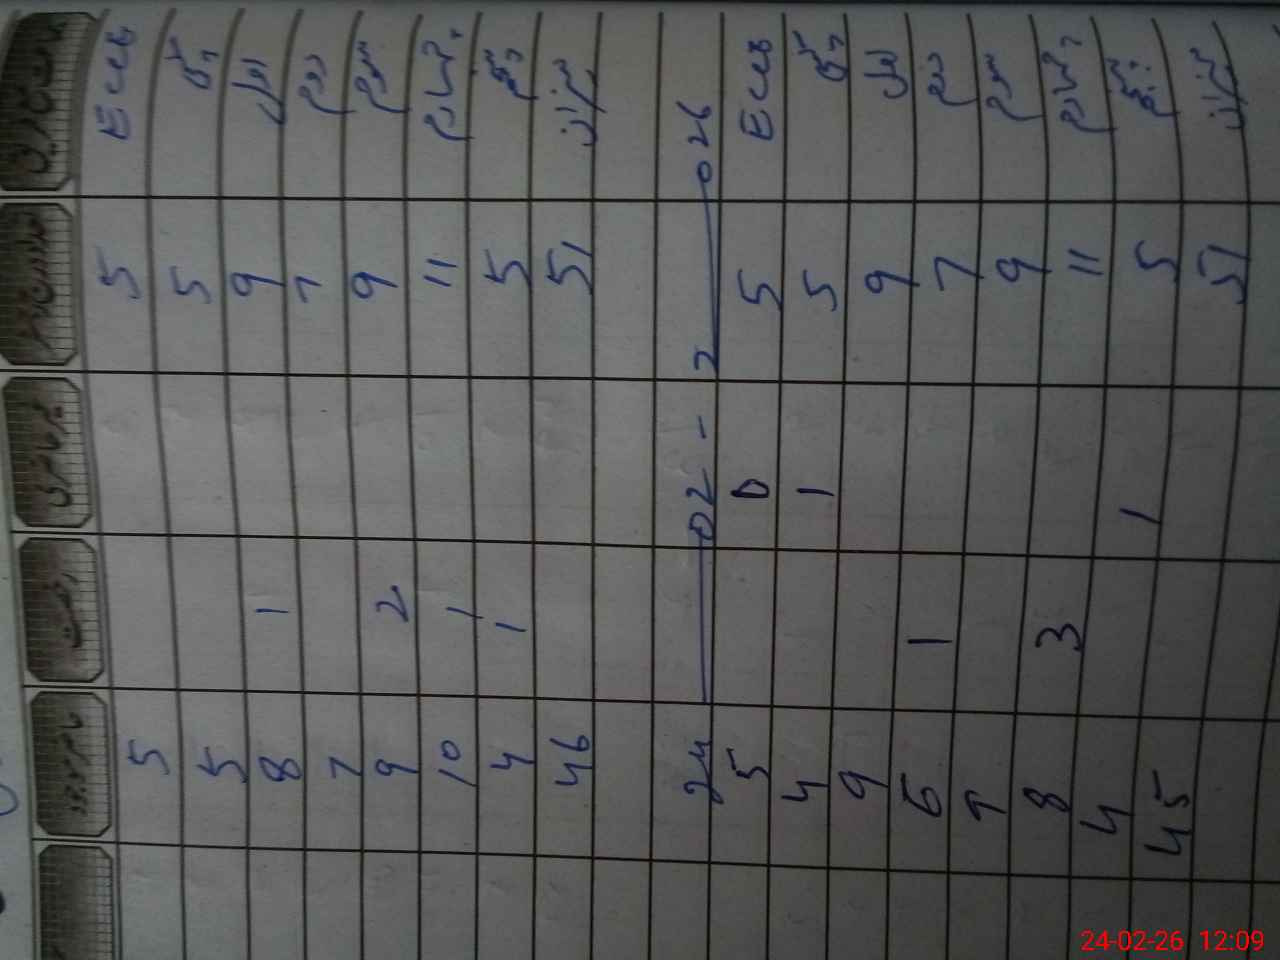 غیر حاضری رخصت
Ecce 5 5
کچی 5 5
اول 9 1 8
دوم 7 7
سوم 9 2 9
چہارم 11 1 10
پنجم 5 1 4
میزان 51 46
24-02-2026
Ecce 5 0 5
کچی 5 1 4
اول 9 9
دوم 7 1 6
سوم 9 7
چہارم 11 3 8
پنجم 5 1 4
میزان 51 45
24-02-26 12:09